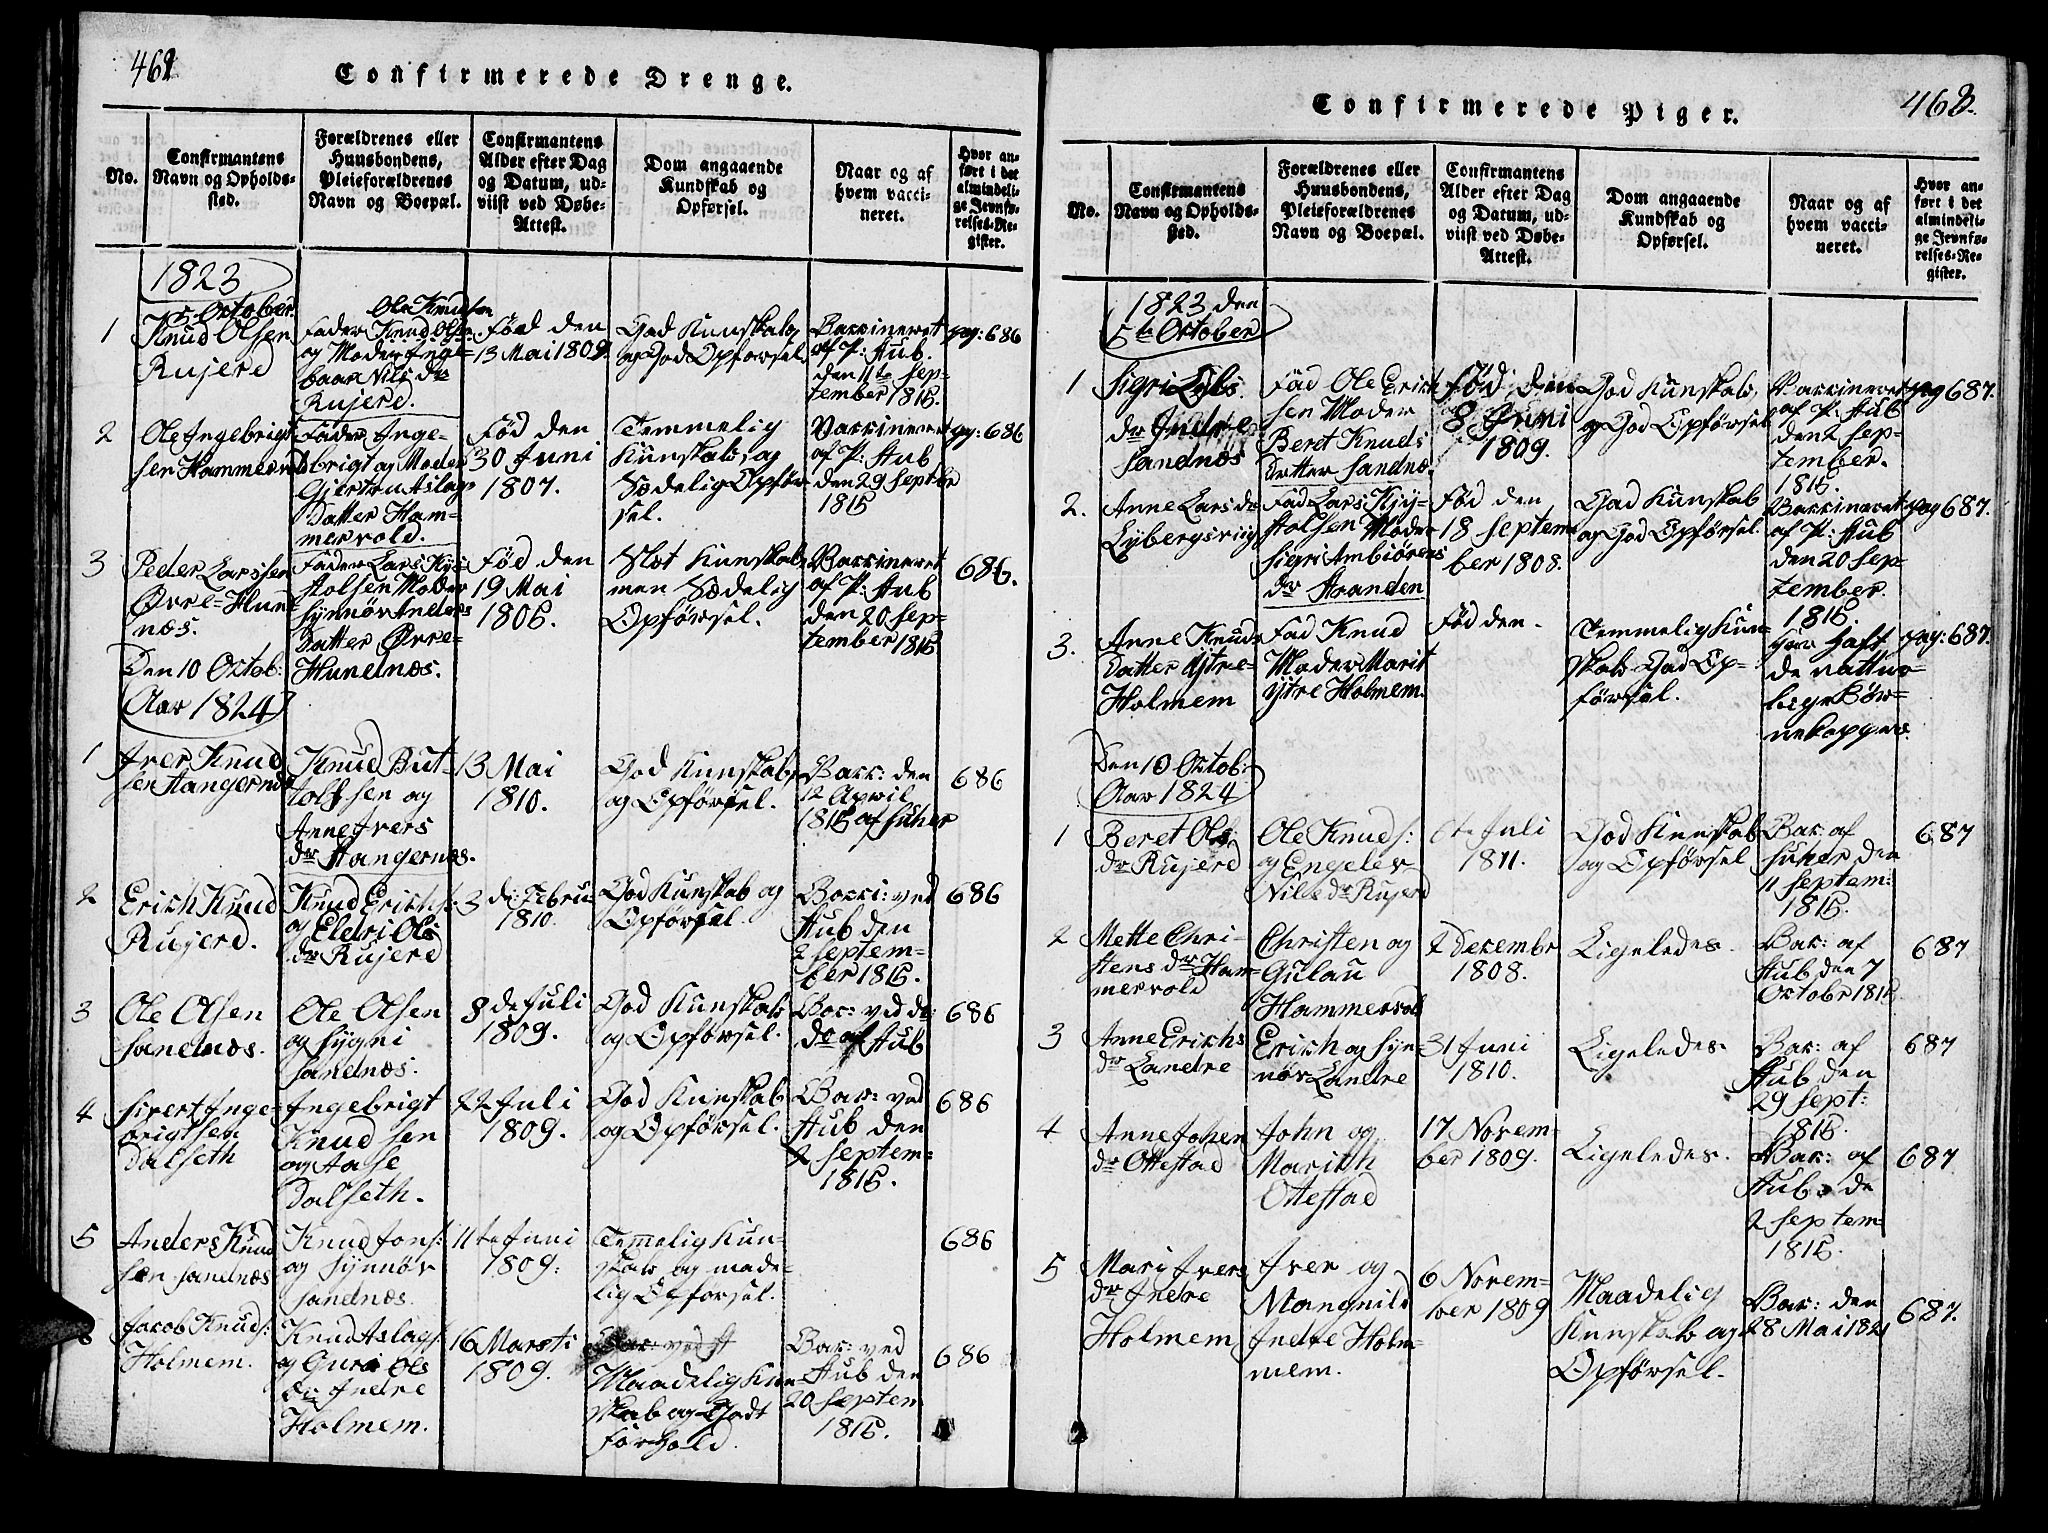 462
Confirmerede Drenge.
No.
Confirmantens
Navn og Opholds-
sted.
Forældrenes eller
Huusbondens,
Pleieforældrenes
Navn og Boepæl.
Confirmantens
Alder efter Dag
og Datum, ud-
viist ved Døbe-
Attest.
Dom angaaende
Kundskab og
Opførsel.
Naar og af
hvem vacci-
neret.
Hvor an-
ført i det
almindeli-
ge Jevnfø-
relses-Re-
gister.
1823
5 October
1
Knud Olsen
Rujerd
Ole Knudsen
Fader Knud Olsen
og Moder Inge-
baar Nils dr
Rujerd.
Fød den
13 Mai 1809.
God Kunskab
og God Opførsel
Vaccineret
af P: Aub.
den 11te Sep-
tember 1816.
pag: 686
2
Ole Ingebrigt-
sen Hammervold
Fader Inge-
brigt og Moder
Gjertru Aslags
Datter Ham-
mervold.
Fød den
30 Juni
1807.
Temmelig
Kunskab, og
Sædelig Opfør
sel.
Vaccineret
af P: Aub
den 29 Septbr
1816
pag: 686
3
Peder Larssen
Øvre-Hund-
næs.
Fader Lars Kjø-
stolsen Moder
Synnøv Anders
Datter Øvre-
Hundnæs.
Fød den
19 Mai
1806.
Slet Kunskab
men Sædelig
Opførsel.
Vaccineret
af P: Aub
den 20 Sep-
tember 1816
686.
Den 10 Octob:
Aar 1824
1
Iver Knud
sen Stangernæs
Knud But-
tolfsen og
Anne Ivers
dr Stangernæs.
13 Mai
1810.
God Kunskab
og Opførsel.
Vacc: den
12 April
1816 af Suher
686
2
Erich Knud
Rujerd.
Knud Erichs:
og Eldri Ols
dr Rujerd
3 de Febru
1810.
God Kunskab og
Opførsel.
Vacci: ved
Aub den
2 Septem-
ber 1816.
686
3
Ole Olsen
Sandnæs.
Ole Olsen
og Sygni
Sandnæs.
8 de Juli
1809.
God Kunskab
og Opførsel.
Vac: ved de
do af Aub
686
4
Sivert Inge-
brigtsen
Dalseth
Ingebrigt
Knudsen
og Aase
Dalseth.
22 Juli
1809.
God Kunskab
og Opførsel.
Vac: ved
Aub den
2 Septem-
1816.
686
5
Anders Knud
sen Sandnæs
Knud Jons:
og Synnøv
Sandnæs.
11te Juni
1809:
Temelig Kun-
skab og made-
lig Opførsel.
686
6
Jacob Knuds:
Holmem.
Knud Aslags:
og Guri Ols
dr Indre
Holmem.
16 Marsti
1809.
Maadelig Kun
skab og Godt
Forhold.
Vac: ved
Aub den
20 Septem
1816.
686
463.
Confirmerede Piger.
No.
Confirmantens
Navn og Opholds-
sted.
Forældrenes eller
Huusbondens,
Pleieforældrenes
Navn og Boepæl.
Confirmantens
Alder efter Dag
og Datum, ud-
viist ved Døbe-
Attest.
Dom angaaende
Kundskab og
Opførsel.
Naar og af
hvem vacci-
neret.
Hvor an-
ført i det
almindeli-
ge Jevnfø-
relses-Re-
gister.
1823 den
5te October
1
Sigri
dr Indre
Sandnæs
Fad Ole Erich
sen Moder
Beret Knuds
datter Sandnæ.
Fød den
8 Juni
1809.
God Kunskab,
og God Opførsel
Vaccineret
af P: Aub
den 2 Sep-
tember.
1816.
pag 687.
2.
Anne Lars dr
Lybergsviig
Fad Lars Kjø-
stolsen Moder
Sigri Ambiørns
dr Stranden
Fød den
18 Septem
ber 1808.
God Kunskab
og God Opførsel
Vaccineret
af P: Aub
den 20 Sep-
tember
1816.
pag 687.
3.
Anne Knuds
Datter Ytre-
Holmem
Fad Knud
Moder Marit
Ytre Holmem.
Fød den.
Temmelig Kun-
skab God Op-
førsel.
har haft
de nattur-
lige Bør-
nekopper.
pag: 687.
Den 10 Octob:
Aar 1824
1
Beret Ols:
dr Rujerd
Ole Knuds:
og Engelev
Nils dr Rujerd
6te Juli
1811.
God Kunskab
og Opførsel
Vac: af
Suher den
11 Septem:
1816.
687
2
Mette Chri-
stens dr Ham-
mervold
Christen og
Gulau
Hammervold
2 December
1808.
Ligeledes.
Vac: af
Aub den 7
Octobr 1816
687
3
Anne Erichs
dr Landre
Erich og Syn-
nøv Landre
31 Juni
1810.
Ligeledes
Vac: af
Aub den
29 Sept:
1816.
687
4
Anne Johen
dr Ottestad
John og
Marith
Ottestad
17 Novem-
ber 1809.
Ligeledes.
Vac: af
Aub de
2 Septem
1816.
687
5
Mari Ivers
dr Indre
Holmem
Iver og
Mangnild
Indre Holm-
mem.
6 Novem-
ber 1809
Maadelig
Kunskab og
Opførsel.
Vac: den
28 Mai 1821
687.